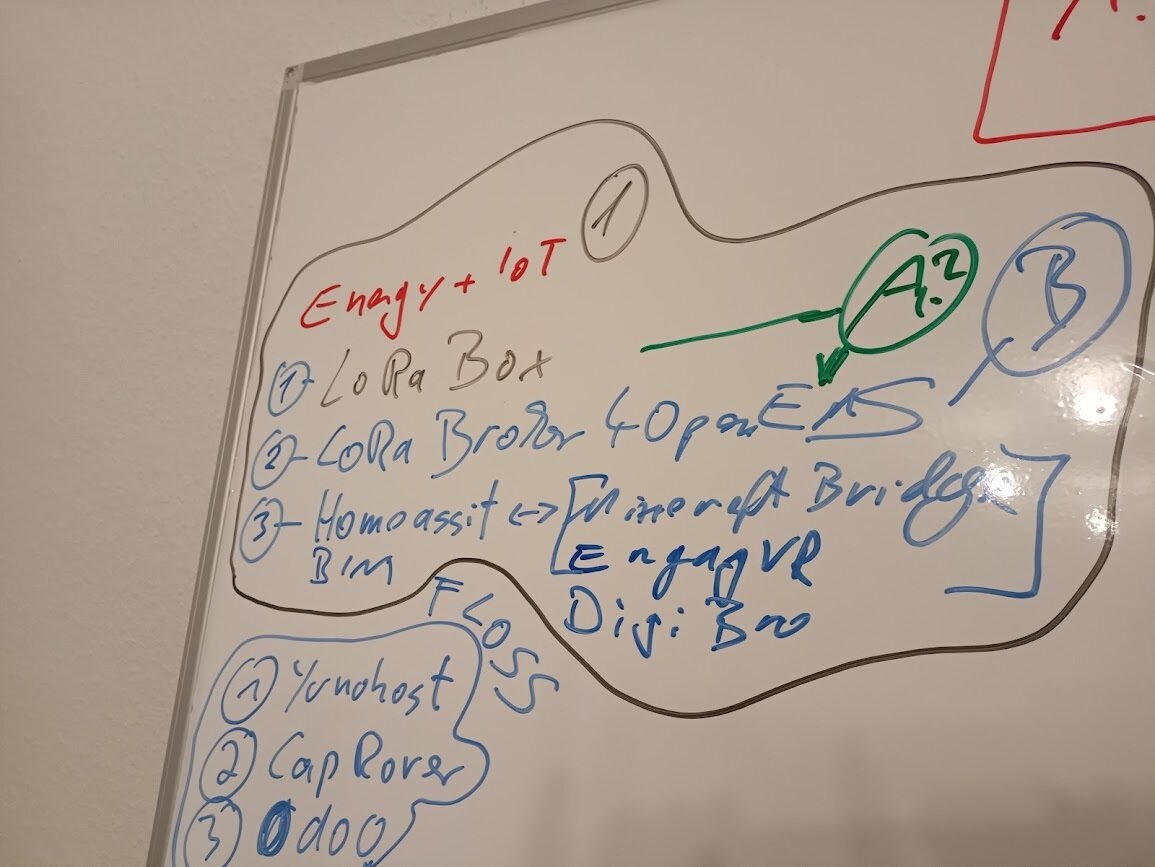 1
Energy + IoT
A.?
B
1 - LoRa Box
2 - LoRa Broker 4 OpenEMS
3 - Homeassit <-> [Minecraft Bridge]
BIM
EngagVR
Digi Bro
FLOSS
1 Yunohost
2 CapRover
3 Odoo